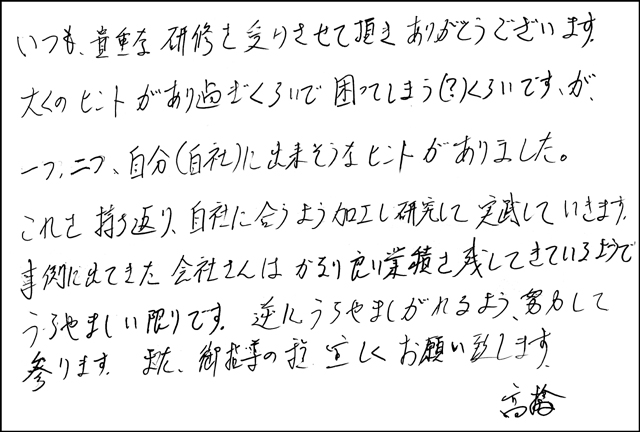 いつも、貴重な研修を受けさせて頂きありがとうございます。
たくのヒントがあり過ぎくらいで困ってしまう(?)くらいですが、
一つ、二つ、自分(自社)に出来そうなヒントがありました。
これを持ち返り、自社に合うよう加工し研究して実践していきます。
事例に出てきた会社さんはかなり良い業績を残してきているようで
うらやましい限りです。逆にうらやましがれるよう、努力して
参ります。また、御指導の程宜しくお願い致します。
高橋